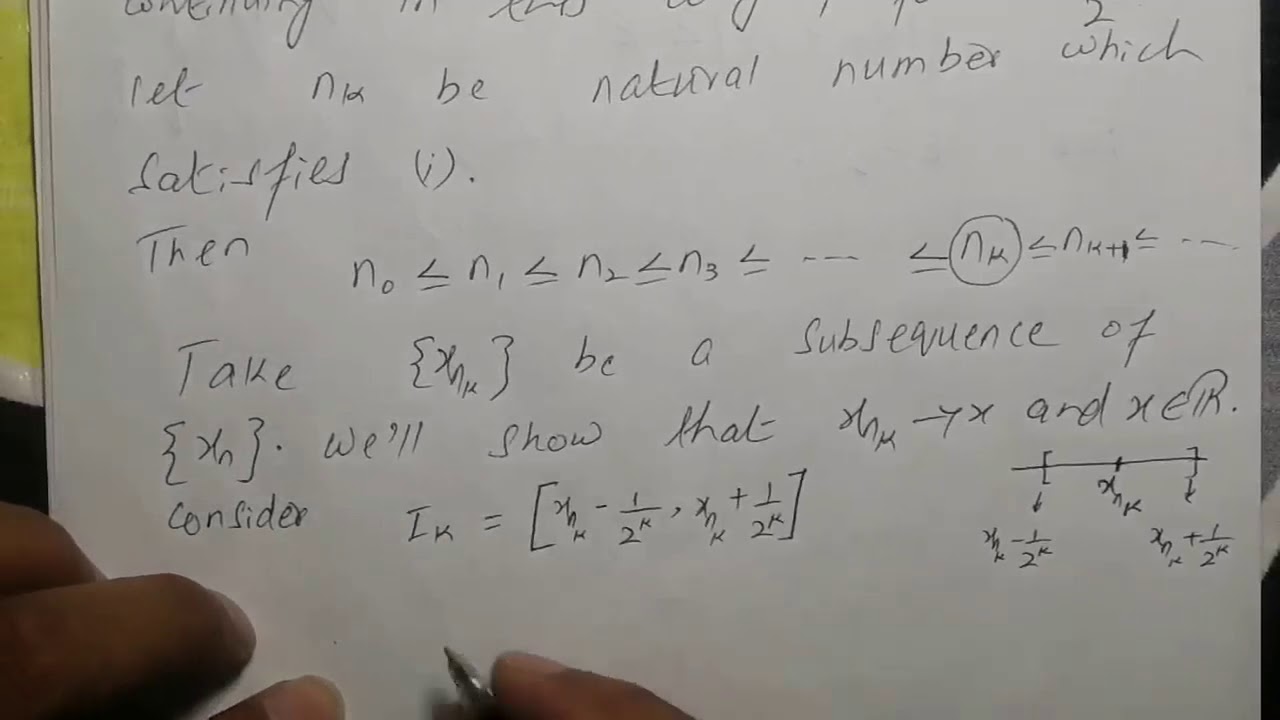 continuing in this way, for 2
let nₖ be natural number which
satisfies (i).
Then n₀ ≤ n₁ ≤ n₂ ≤ n₃ ≤ ---- ≤ nₖ ≤ nₖ₊₁ ≤ ----
Take {x_{nₖ}} be a subsequence of
{xₙ}. we'll show that x_{nₖ} → x and x ∈ ℝ.
consider Iₖ = [x_{nₖ} - 1/2ᵏ, x_{nₖ} + 1/2ᵏ]
x_{nₖ}
x_{nₖ} - 1/2ᵏ x_{nₖ} + 1/2ᵏ